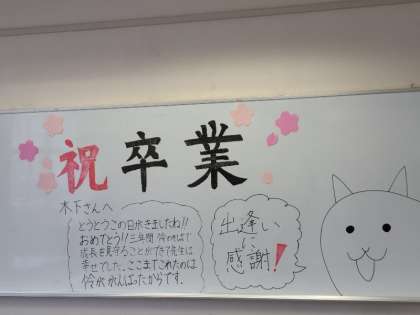 祝卒業
木下さんへ
とうとうこの日が来ましたね!!
おめでとう!!三年間 怜のそばで
成長を見守ることができて先生は
幸せでした。ここまでこれたのは
怜ががんばったからです。
出逢い
に
感謝!